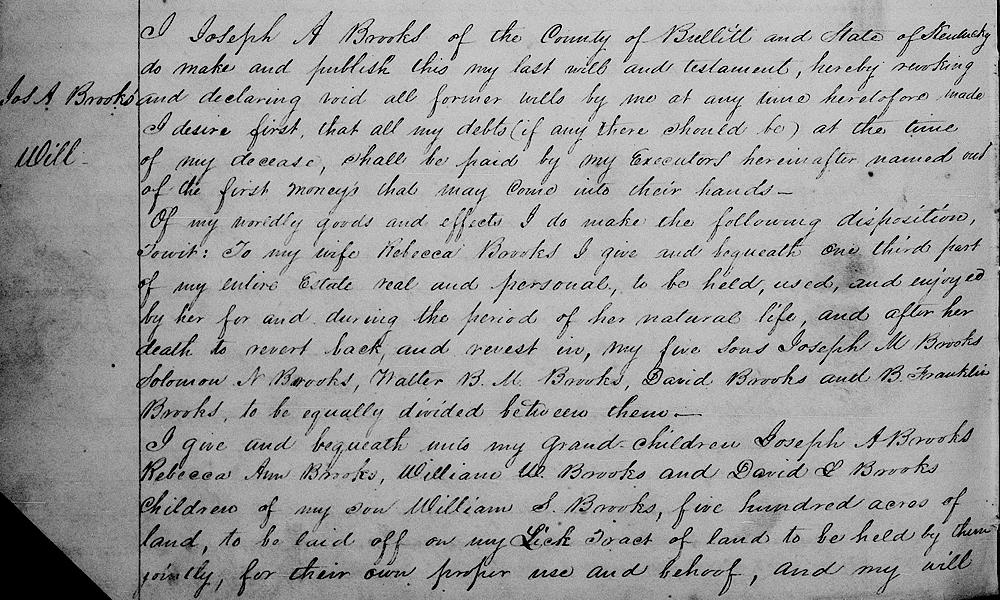 I Joseph A Brooks of the County of Bullitt and State of Kentucky
do make and publish this my last will and testament, hereby revoking
Jos A. Brooks and declaring void all former wills by me at any time heretofore made
I desire first, that all my debts (if any there should be) at the time
Will - of my decease, shall be paid by my Executors hereinafter named out
of the first money's that may come into their hands—
Of my wordly goods and effects I do make the following disposition,
Towit: To my wife Rebecca Brooks I give and bequeath one third part
of my entire Estate real and personal, to be held, used, and enjoyed
by her for and during the period of her natural life, and after her
death to revert back, and revest in, my five sons Joseph M Brooks
Solomon N Brooks, Walter B. M. Brooks, David Brooks and B. Franklin
Brooks, to be equally divided between them—
I give and bequeath unto my grand-children Joseph A Brooks
Rebecca Ann Brooks, William W. Brooks and David L Brooks
Children of my son William S. Brooks, five hundred acres of
land, to be laid off on my Lick Tract of land to be held by them
jointly, for their own proper use and behoof, and my will